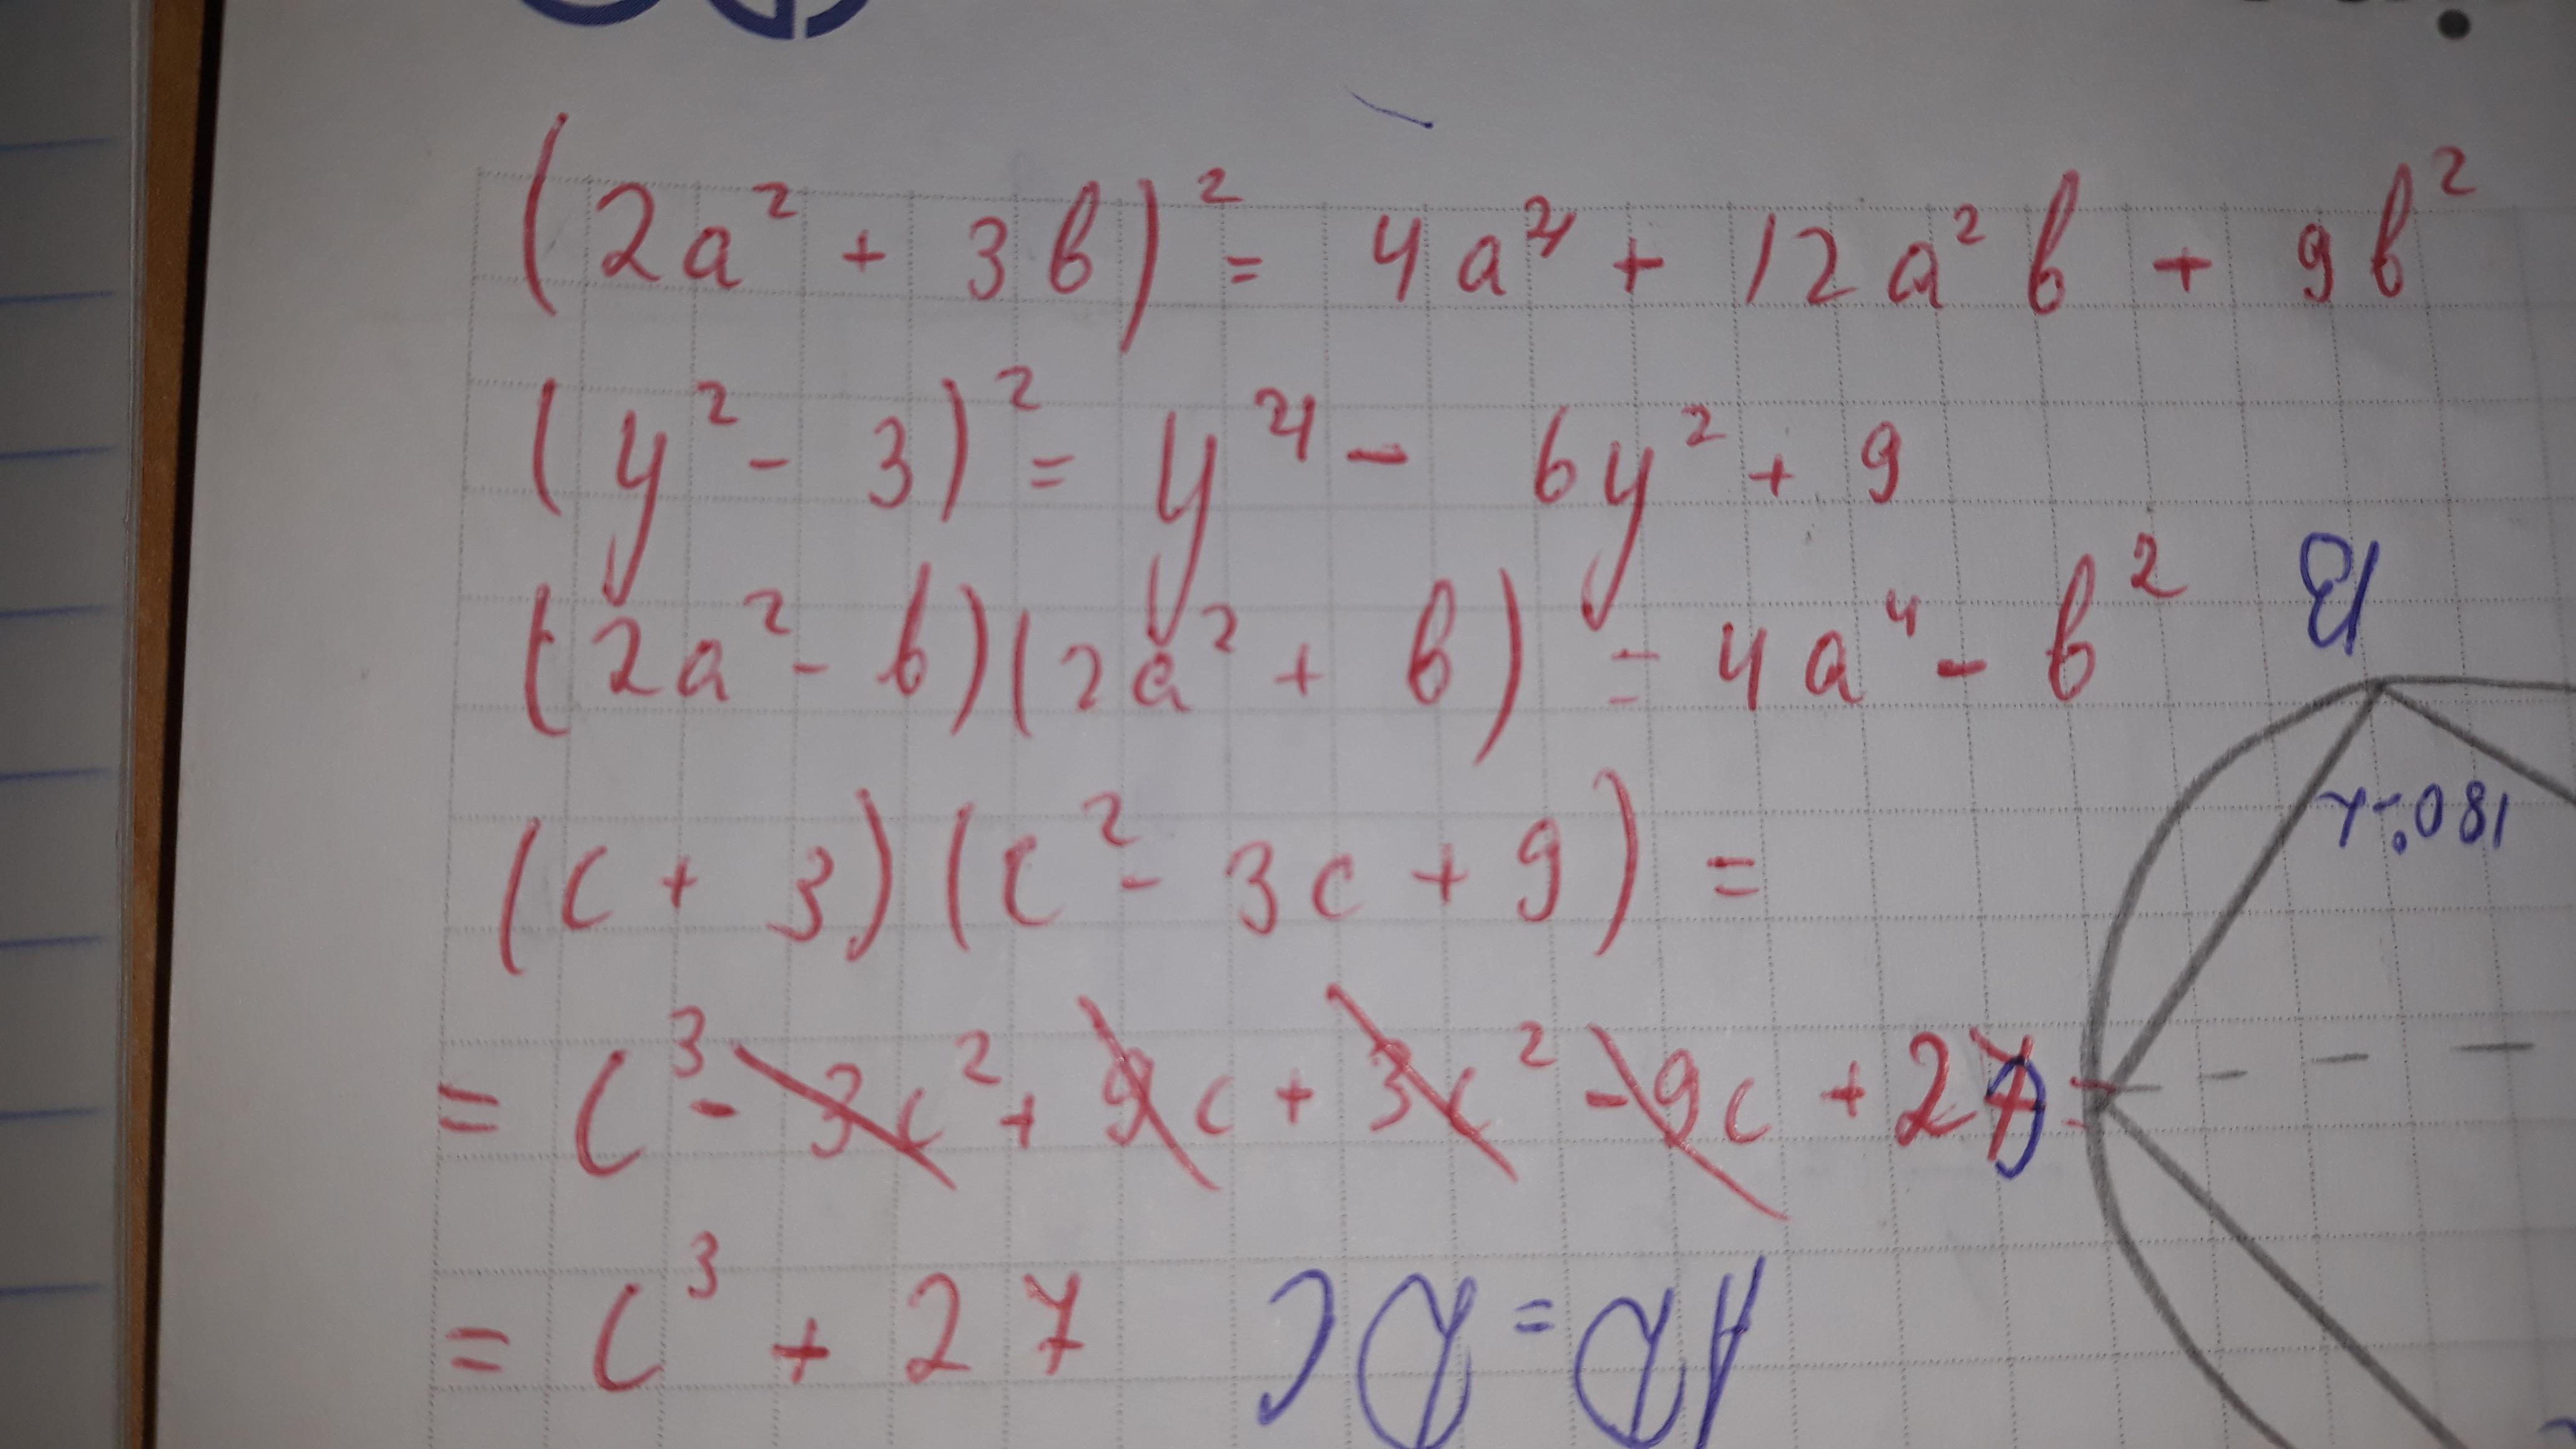 (2a² + 3b)² = 4a⁴ + 12a²b + 9b²
(y² - 3)² = y⁴ - 6y² + 9
(2a² - b)(2a² + b) = 4a⁴ - b²
B
(c + 3)(c² - 3c + 9) =
180° - α
= c³ - 3c² + 9c + 3c² - 9c + 27 =
= c³ + 27
AD = DC